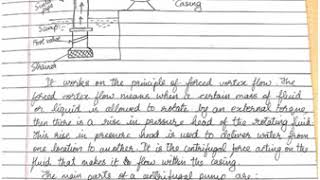 Casing
Sump
Foot valve
Strainer
It works on the principle of forced vortex flow. The
forced vortex flow means when a certain mass of fluid
or liquid is allowed to rotate by an external torque,
then there is a rise in pressure head of the rotating fluid.
This rise in pressure head is used to deliver water from
one location to another. It is the centrifugal force acting on the
fluid that makes it to flow within the casing.
The main parts of a centrifugal pump are: